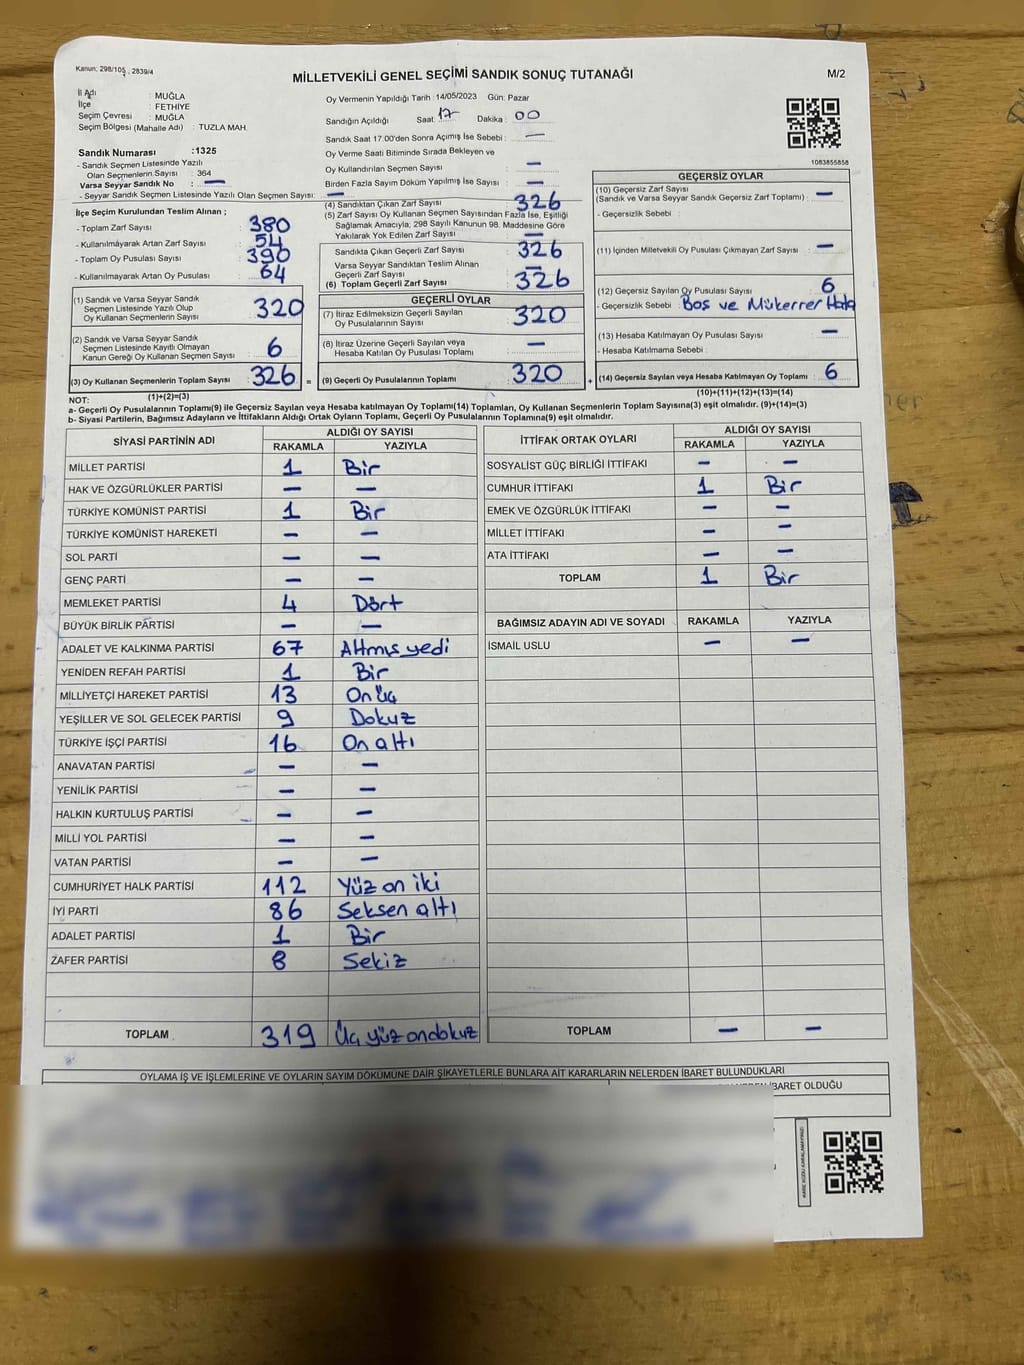 Kanun: 298/105, 2839/4
MİLLETVEKİLİ GENEL SEÇİMİ SANDIK SONUÇ TUTANAĞI
M/2
İl Adı : MUĞLA
İlçe : FETHİYE
Seçim Çevresi : MUĞLA
Seçim Bölgesi (Mahalle Adı) : TUZLA MAH.
Sandık Numarası :1325
- Sandık Seçmen Listesinde Yazılı
Olan Seçmenlerin Sayısı : 364
Varsa Seyyar Sandık No : —
- Seyyar Sandık Seçmen Listesinde Yazılı Olan Seçmen Sayısı: —
İlçe Seçim Kurulundan Teslim Alınan ;
- Toplam Zarf Sayısı : 380
- Kullanılmayarak Artan Zarf Sayısı : 54
- Toplam Oy Pusulası Sayısı : 390
- Kullanılmayarak Artan Oy Pusulası : 64
(1) Sandık ve Varsa Seyyar Sandık
Seçmen Listesinde Yazılı Olup
Oy Kullanan Seçmenlerin Sayısı 320
(2) Sandık ve Varsa Seyyar Sandık
Seçmen Listesinde Kayıtlı Olmayan
Kanun Gereği Oy Kullanan Seçmen Sayısı 6
(3) Oy Kullanan Seçmenlerin Toplam Sayısı 326 =
(1)+(2)=(3)
Oy Vermenin Yapıldığı Tarih : 14/05/2023 Gün: Pazar
Sandığın Açıldığı Saat: 17 Dakika : 00
Sandık Saat 17.00'den Sonra Açımış İse Sebebi : —
Oy Verme Saati Bitiminde Sırada Bekleyen ve
Oy Kullandırılan Seçmen Sayısı : —
Birden Fazla Sayım Döküm Yapılmış İse Sayısı : —
(4) Sandıktan Çıkan Zarf Sayısı : 326
(5) Zarf Sayısı Oy Kullanan Seçmen Sayısından Fazla İse, Eşitliği
Sağlamak Amacıyla, 298 Sayılı Kanunun 98. Maddesine Göre
Yakılarak Yok Edilen Zarf Sayısı : —
Sandıkta Çıkan Geçerli Zarf Sayısı : 326
Varsa Seyyar Sandıktan Teslim Alınan
Geçerli Zarf Sayısı : —
(6) Toplam Geçerli Zarf Sayısı : 326
GEÇERLİ OYLAR
(7) İtiraz Edilmeksizin Geçerli Sayılan
Oy Pusulalarının Sayısı : 320
(8) İtiraz Üzerine Geçerli Sayılan veya
Hesaba Katılan Oy Pusulası Toplamı : —
(9) Geçerli Oy Pusulalarının Toplamı 320 +
1083855858
GEÇERSİZ OYLAR
(10) Geçersiz Zarf Sayısı
(Sandık ve Varsa Seyyar Sandık Geçersiz Zarf Toplamı) : —
- Geçersizlik Sebebi :
(11) İçinden Milletvekili Oy Pusulası Çıkmayan Zarf Sayısı : —
(12) Geçersiz Sayılan Oy Pusulası Sayısı : 6
- Geçersizlik Sebebi : Boş ve Mükerrer
(13) Hesaba Katılmayan Oy Pusulası Sayısı : —
- Hesaba Katılmama Sebebi :
(14) Geçersiz Sayılan veya Hesaba Katılmayan Oy Toplamı : 6
(10)+(11)+(12)+(13)=(14)
NOT:
a- Geçerli Oy Pusulalarının Toplamı(9) ile Geçersiz Sayılan veya Hesaba katılmayan Oy Toplamı(14) Toplamları, Oy Kullanan Seçmenlerin Toplam Sayısına(3) eşit olmalıdır. (9)+(14)=(3)
b- Siyasi Partilerin, Bağımsız Adayların ve İttifakların Aldığı Ortak Oyların Toplamı, Geçerli Oy Pusulalarının Toplamına(9) eşit olmalıdır.
SİYASİ PARTİNİN ADI ALDIĞI OY SAYISI
RAKAMLA YAZIYLA
MİLLET PARTİSİ 1 Bir
HAK VE ÖZGÜRLÜKLER PARTİSİ — —
TÜRKİYE KOMÜNİST PARTİSİ 1 Bir
TÜRKİYE KOMÜNİST HAREKETİ — —
SOL PARTİ — —
GENÇ PARTİ — —
MEMLEKET PARTİSİ 4 Dört
BÜYÜK BİRLİK PARTİSİ — —
ADALET VE KALKINMA PARTİSİ 67 Altmış yedi
YENİDEN REFAH PARTİSİ 1 Bir
MİLLİYETÇİ HAREKET PARTİSİ 13 On üç
YEŞİLLER VE SOL GELECEK PARTİSİ 9 Dokuz
TÜRKİYE İŞÇİ PARTİSİ 16 On altı
ANAVATAN PARTİSİ — —
YENİLİK PARTİSİ — —
HALKIN KURTULUŞ PARTİSİ — —
MİLLİ YOL PARTİSİ — —
VATAN PARTİSİ — —
CUMHURİYET HALK PARTİSİ 112 Yüz on iki
İYİ PARTİ 86 Seksen altı
ADALET PARTİSİ 1 Bir
ZAFER PARTİSİ 8 Sekiz
TOPLAM 319 Üç yüz ondokuz
İTTİFAK ORTAK OYLARI ALDIĞI OY SAYISI
RAKAMLA YAZIYLA
SOSYALİST GÜÇ BİRLİĞİ İTTİFAKI — —
CUMHUR İTTİFAKI 1 Bir
EMEK VE ÖZGÜRLÜK İTTİFAKI — —
MİLLET İTTİFAKI — —
ATA İTTİFAKI — —
TOPLAM 1 Bir
BAĞIMSIZ ADAYIN ADI VE SOYADI RAKAMLA YAZIYLA
İSMAİL USLU — —
TOPLAM — —
OYLAMA İŞ VE İŞLEMLERİNE VE OYLARIN SAYIM DÖKÜMÜNE DAİR ŞİKAYETLERLE BUNLARA AİT KARARLARIN NELERDEN İBARET BULUNDUKLARI
İBARET OLDUĞU